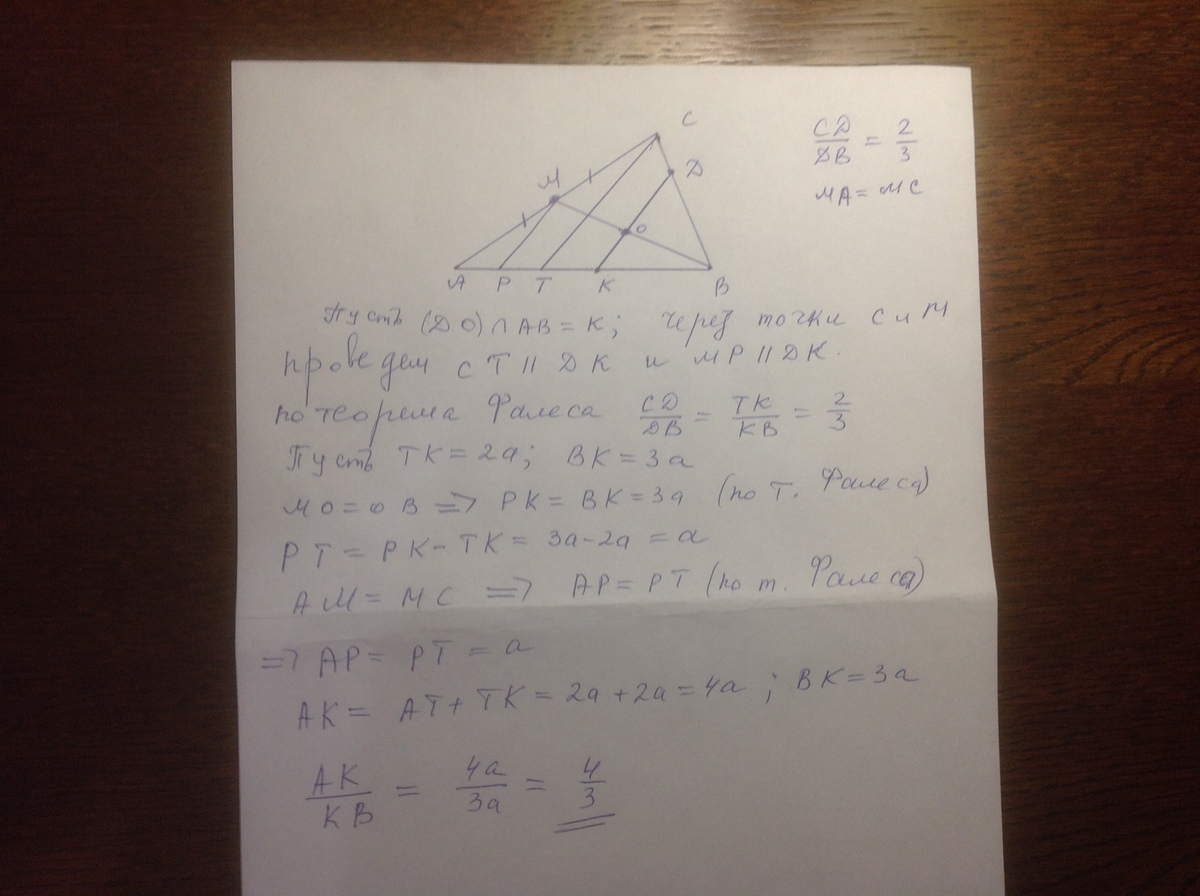 C
M
D
O
A P T K B
CD/DB = 2/3
MA = MC
Пусть (DO) ∩ AB = K; через точки C и M
проведем CT || DK и MP || DK.
по теорема Фалеса CD/DB = TK/KB = 2/3
Пусть TK = 2a; BK = 3a
MO = OB => PK = BK = 3a (по т. Фалеса)
PT = PK - TK = 3a - 2a = a
AM = MC => AP = PT (по т. Фалеса)
=> AP = PT = a
AK = AT + TK = 2a + 2a = 4a ; BK = 3a
AK/KB = 4a/3a = 4/3